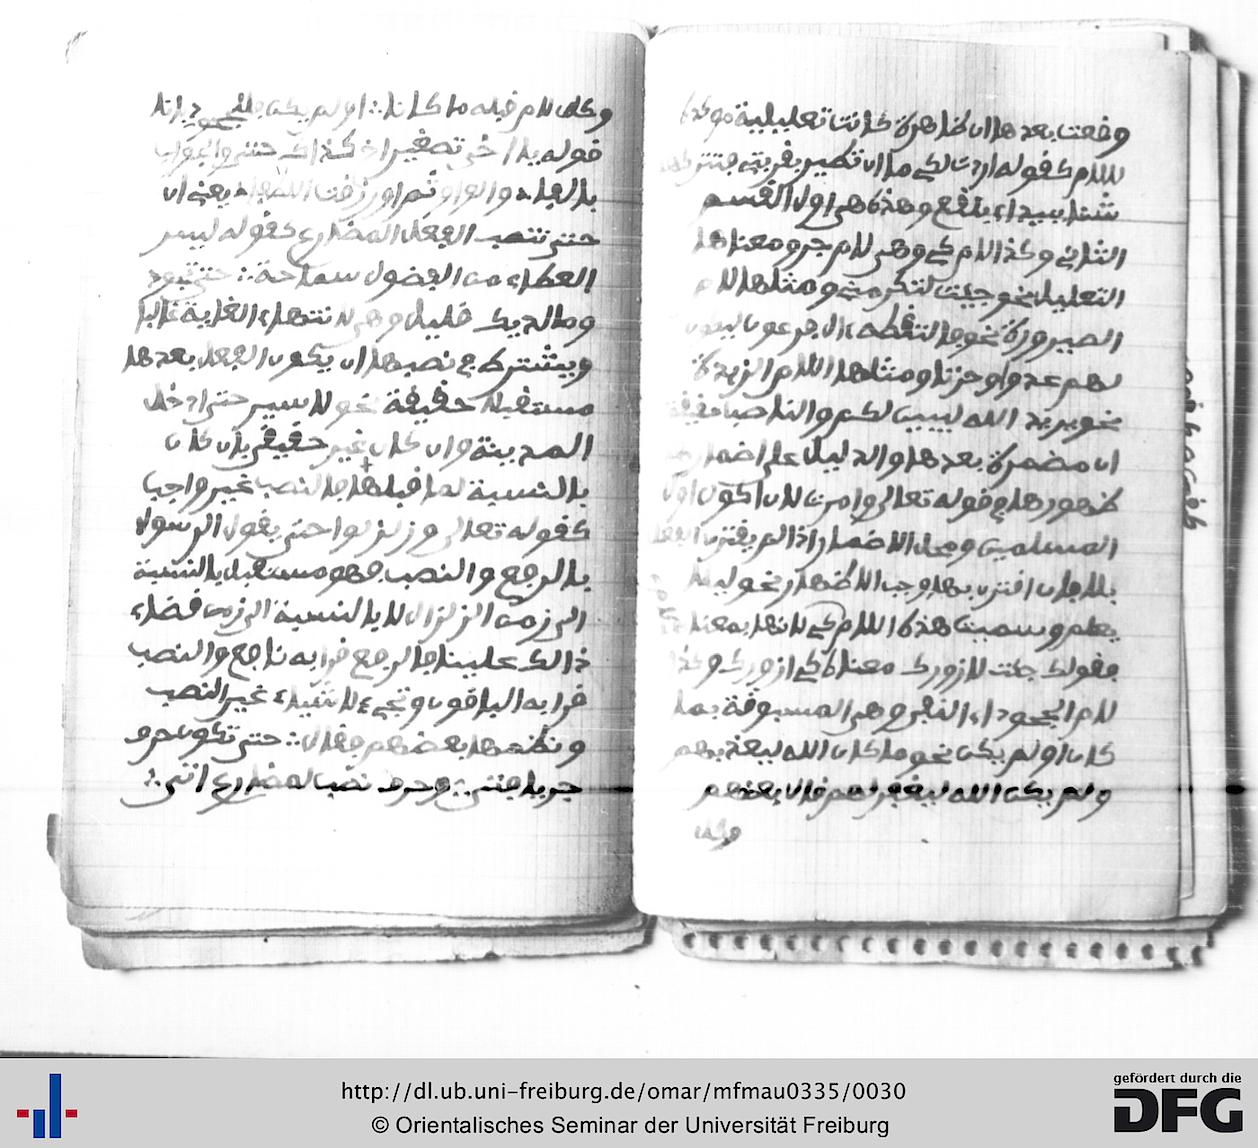 وقعت بعدها ان ظاهرة كانت تعليلية موكدة
للام كقوله اردت لكي ما ان تطير بقربتي فتتركها
شنا ببيداء بلقع وهذه هي اول القسم
الثاني وكذا لام كي وهي لام جر ومعناها
التعليل نحو جئت لتكرمني ومثلها لام
الصيرورة نحو فالتقطه ءال فرعون ليكون
لهم عدوا وحزنا ومثلها اللام الزيدة
نحو يريد الله ليبين لكم والناصب حقيقة
ان مضمرة بعدها والدليل على اضمارها
ظهورها في قوله تعالى وامرت لان اكون اول
المسلمين ومحل الاضمار اذا لم يقترن الفعل
بلا فان اقترن بها وجب الاظهار نحو ليلا
يعلم وسميت هذه اللام كي لانها بمعنا كي
فقولك جئت لازورك معناه كي ازورك وكذا
لام الجحود اء النفي وهي المسبوقة بما
كان او لم يكن نحو ما كان الله ليعذبهم
ولم يكن الله ليغفر لهم قال بعضهم
وكل
وكل لام قبله ما كانا ∴ او لم يكن فللجحود بانا
قوله يا اخي تصغير اخ كذاك حتى والجواب
بالفاء والواو ثم او رزقت اللطفاء يعني ان
حتى تنصب الفعل المضارع كقوله ليس
العطاء من الفضول سماحة ∴ حتى تجود
وما لديك قليل وهي لانتهاء الغاية غالبا
ويشترط في نصبها ان يكون الفعل بعدها
مستقبلا حقيقة نحو لاسير حتى ادخل
المدينة وان كان غير حقيقي بان كان
بالنسبة لما قبلها فالنصب غير واجب
كقوله تعالى وزلزلوا حتى يقول الرسول
بالرفع والنصب فهو مستقبل بالنسبة
الى زمن الزلزال لا بالنسبة الى زمن قضاء
ذالك علينا فالرفع قرا به نافع والنصب
قرا به الباقون وتجيء لاشياء غير النصب
ونظمها بعضهم فقال ∴ حتى تكون حرف
جر يا فتى ∴ وحرف نصب لمضارع اتى ∴
http://dl.ub.uni-freiburg.de/omar/mfmau0335/0030
© Orientalisches Seminar der Universität Freiburg
gefördert durch die
DFG